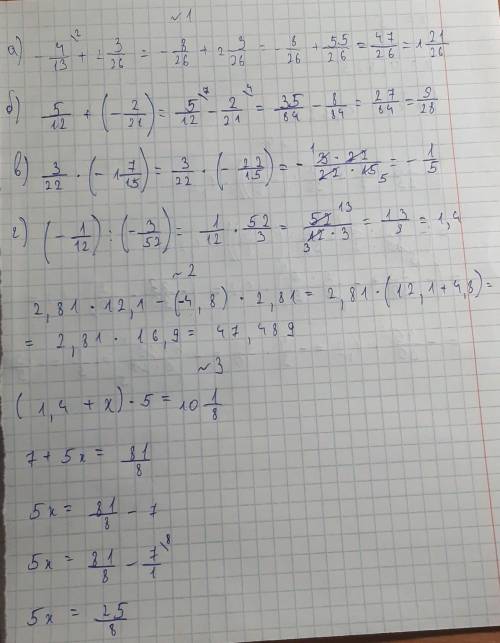 ~1
а) - 4/13 \2 + 2 3/26 = - 8/26 + 2 3/26 = - 8/26 + 55/26 = 47/26 = 1 21/26
б) 5/12 + (- 2/21) = 5/12 \7 - 2/21 \4 = 35/84 - 8/84 = 27/84 = 9/28
в) 3/22 · (- 1 7/15) = 3/22 · (- 22/15) = - 1 3 · 22/22 · 15 5 = - 1/5
г) (- 1/12) : (- 3/52) = 1/12 · 52/3 = 52 13/3 12 · 3 = 13/9 = 1,4
~2
2,81 · 12,1 - (-4,8) · 2,81 = 2,81 · (12,1 + 4,8) =
= 2,81 · 16,9 = 47,489
~3
(1,4 + x) · 5 = 10 1/8
7 + 5x = 81/8
5x = 81/8 - 7
5x = 81/8 - 7/1 \8
5x = 25/8